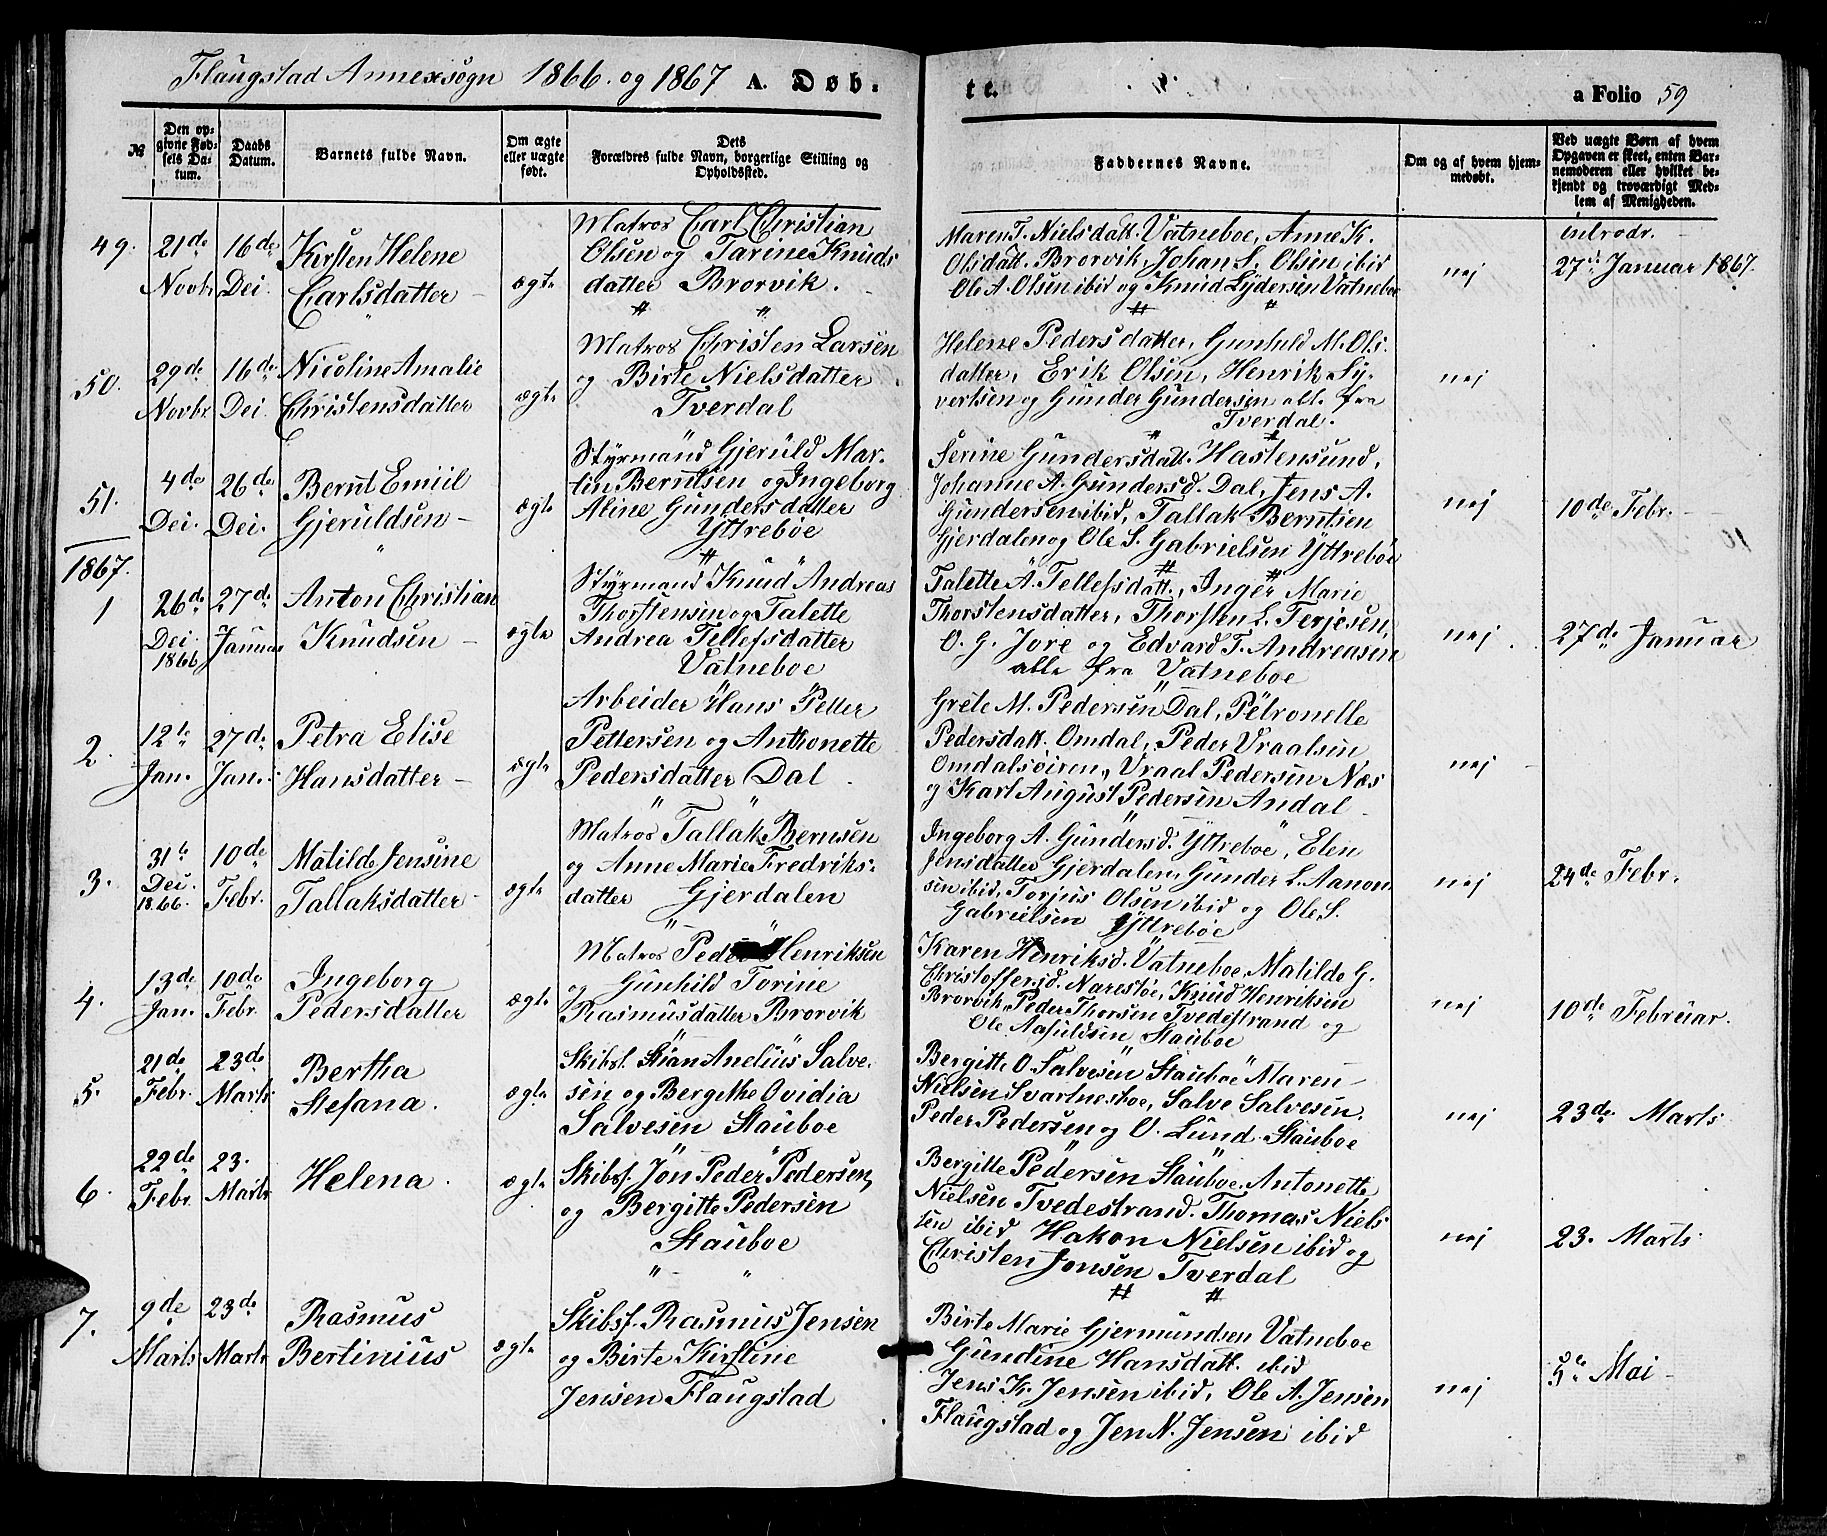 Flaugstad Annexsogn 1866. og 1867 A. Døb=
te. a Folio 59
№
Den op=
givne Fød=
sels Da=
tum.
Daabs
Datum.
Barnets fulde Navn.
Om ægte
eller uægte
født.
Dets
Forældres fulde Navn, borgerlige Stilling og
Opholdssted.
Faddernes Navne.
Om og af hvem hjem=
medøbt.
Ved uægte Børn af hvem
Opgaven er skeet, enten Bar=
nemoderen eller hvilket be=
kjendt og troværdigt Med=
lem af Menigheden.
49. 21de Novbr 16de Dei
Kirsten Helene
Carlsdatter
ægte
Matros Carl Christian
Olsen og Tarine Knuds
datter Brorvik.
Maren T. Nielsdatt. Vatneboe, Anne K.
Olsdatt. Brorvik, Johan S. Olsen ibid
Ole A. Olsen ibid og Knud Lydersen Vatneboe
nej
introd.
27de Januar 1867.
50. 29de Novbr. 16de Dei.
Nicoline Amalie
Christensdatter
ægte
Matros Christen Larsen
og Birte Nielsdatter
Tverdal
Helene Pedersdatter, Gunhild M. Ols.
datter, Erik Olsen, Henrik Sy-
vertsen og Gunder Gundersen all. fra
Tverdal.
nej
51. 4de Dei. 26de Dei.
Bernt Emiil
Gjeruldsen
ægte
Styrmand Gjeruld Mar-
tin Berntsen og Ingeborg
Aline Gundersdatter
Yttrebøe
Serine Gundersdatt. Hastensund,
Johanne A. Gundersd. Dal, Jens A.
Gundersen ibid, Tallak Berntsen
Gjerdalen og Ole S. Gabrielsen Yttrebøe
nej
10de Febr.
1867.
1 26de Dei 1866 27de Januar
Anton Christian
Knudsen
ægte
Styrmand Knud Andreas
Thorstensen og Talette
Andrea Tellefsdatter
Vatneboe
Talette A. Tellefsdatt., Inger Marie
Thorstensdatter, Thorsten L. Terjesen,
O. G. Jore og Edvard T. Andreasen
alle fra Vatneboe
nej
27de Januar
2. 12te Jan. 27de Jan.
Petra Elise
Hansdatter
ægte
Arbeider Hans Petter
Pettersen og Anthonette
Pedersdatter Dal
Grete M. Pedersen Dal, Petronelle
Pedersdatt. Omdal, Peder Vraalsen
Omdalsøiren, Vraal Pedersen Næs
og Karl August Pedersen Andal
nej
3. 31te Dei. 1866. 10de Febr.
Matilde Jensine
Tallaksdatter
ægte
Matros Tallak Bernsen
og Anne Marie Fredriks-
datter Gjerdalen
Ingeborg A. Gundersd. Yttrebøe, Elen
Jensdatter Gjerdalen, Gunder L. Aanon
sen ibid, Torjus Olsen ibid og Ole S.
Gabrielsen Yttrebøe
nej
24de Febr.
4. 13de Jan. 10de Febr.
Ingeborg
Pedersdatter
ægte
Matros Peder Henriksen
og Gunhild Torine
Rasmusdatter Brorvik
Karen Henriksd. Vatneboe, Matilde G.
Christoffersd. Narestøe, Knud Henriksen
Brorvik, Peder Thorsen Tvedestrand og
Ole Aasuldsen Stauboe
nej
10de Februar.
5. 21de Febr. 23de Marts
Bertha
Stefana.
ægte
Skibsf. Stian Anelius Salve-
sen og Bergithe Ovidia
Salvesen Stauboe
Bergitte O. Salvesen Stauboe Maren
Nielsen Svartnestoe, Salve Salvesen.
Peder Pedersen og O. Lund Stauboe
nej
23de Marts
6. 22de Febr. 23. Marts
Helena.
ægte
Skibsf. Jon Peder Pedersen,
og Bergitte Pedersen
Stauboe
Bergitte Pedersen Stauboe, Antonette
Nielsen Tvedestrand. Thomas Niels
sen ibid Hakon Nielsen ibid og
Christen Jonsen Tverdal
nej
23. Marts
7. 9de Marts 23de Marts
Rasmus
Bertinius
ægte
Skibsf. Rasmus Jensen
og Birte Kirstine
Jensen Flaugstad
Birte Marie Gjermundsen Vatneboe
Gundine Hansdatt. ibid
Jens K. Jensen ibid, Ole A. Jensen
Flaugstad og Jen N. Jensen ibid
nej
5te Mai